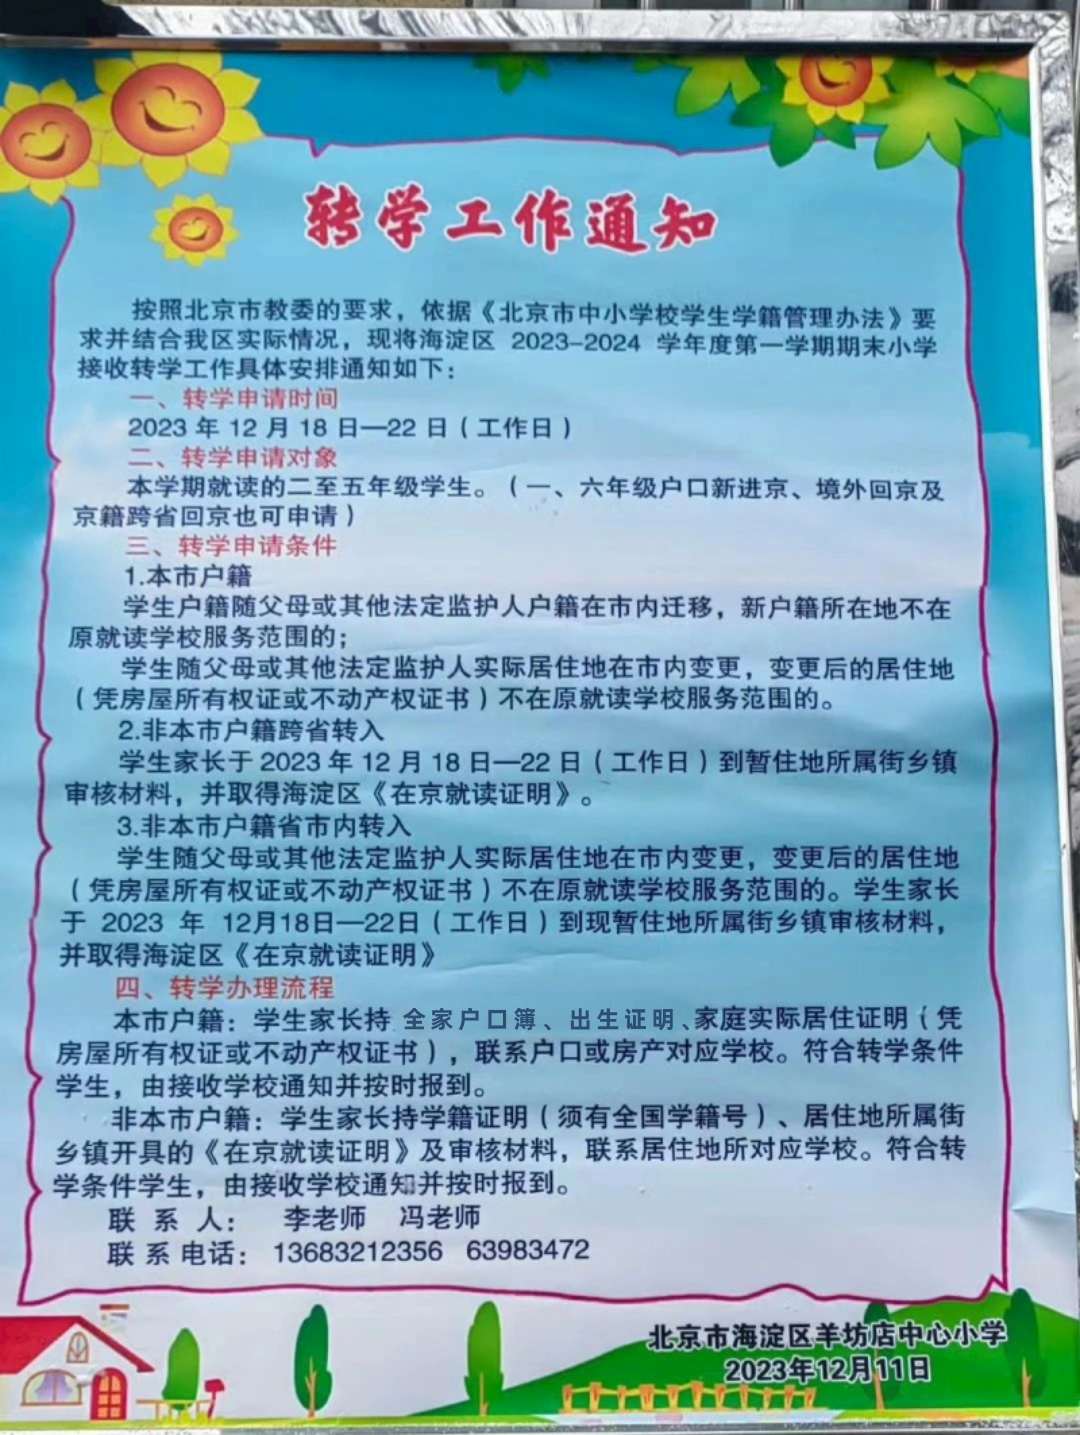 转学工作通知
按照北京市教委的要求，依据《北京市中小学校学生学籍管理办法》要
求并结合我区实际情况，现将海淀区 2023-2024 学年度第一学期期末小学
接收转学工作具体安排通知如下：
一、转学申请时间
2023 年 12 月 18 日—22 日（工作日）
二、转学申请对象
本学期就读的二至五年级学生。（一、六年级户口新进京、境外回京及
京籍跨省回京也可申请）
三、转学申请条件
1.本市户籍
学生户籍随父母或其他法定监护人户籍在市内迁移，新户籍所在地不在
原就读学校服务范围的；
学生随父母或其他法定监护人实际居住地在市内变更，变更后的居住地
（凭房屋所有权证或不动产权证书）不在原就读学校服务范围的。
2.非本市户籍跨省转入
学生家长于 2023 年 12 月 18 日—22 日（工作日）到暂住地所属街乡镇
审核材料，并取得海淀区《在京就读证明》。
3.非本市户籍省市内转入
学生随父母或其他法定监护人实际居住地在市内变更，变更后的居住地
（凭房屋所有权证或不动产权证书）不在原就读学校服务范围的。学生家长
于 2023 年 12月18日—22日（工作日）到现暂住地所属街乡镇审核材料，
并取得海淀区《在京就读证明》
四、转学办理流程
本市户籍：学生家长持 全家户口簿、出生证明、家庭实际居住证明（凭
房屋所有权证或不动产权证书），联系户口或房产对应学校。符合转学条件
学生，由接收学校通知并按时报到。
非本市户籍：学生家长持学籍证明（须有全国学籍号）、居住地所属街
乡镇开具的《在京就读证明》及审核材料，联系居住地所对应学校。符合转
学条件学生，由接收学校通知并按时报到。
联 系 人： 李老师 冯老师
联 系 电话： 13683212356 63983472
北京市海淀区羊坊店中心小学
2023年12月11日